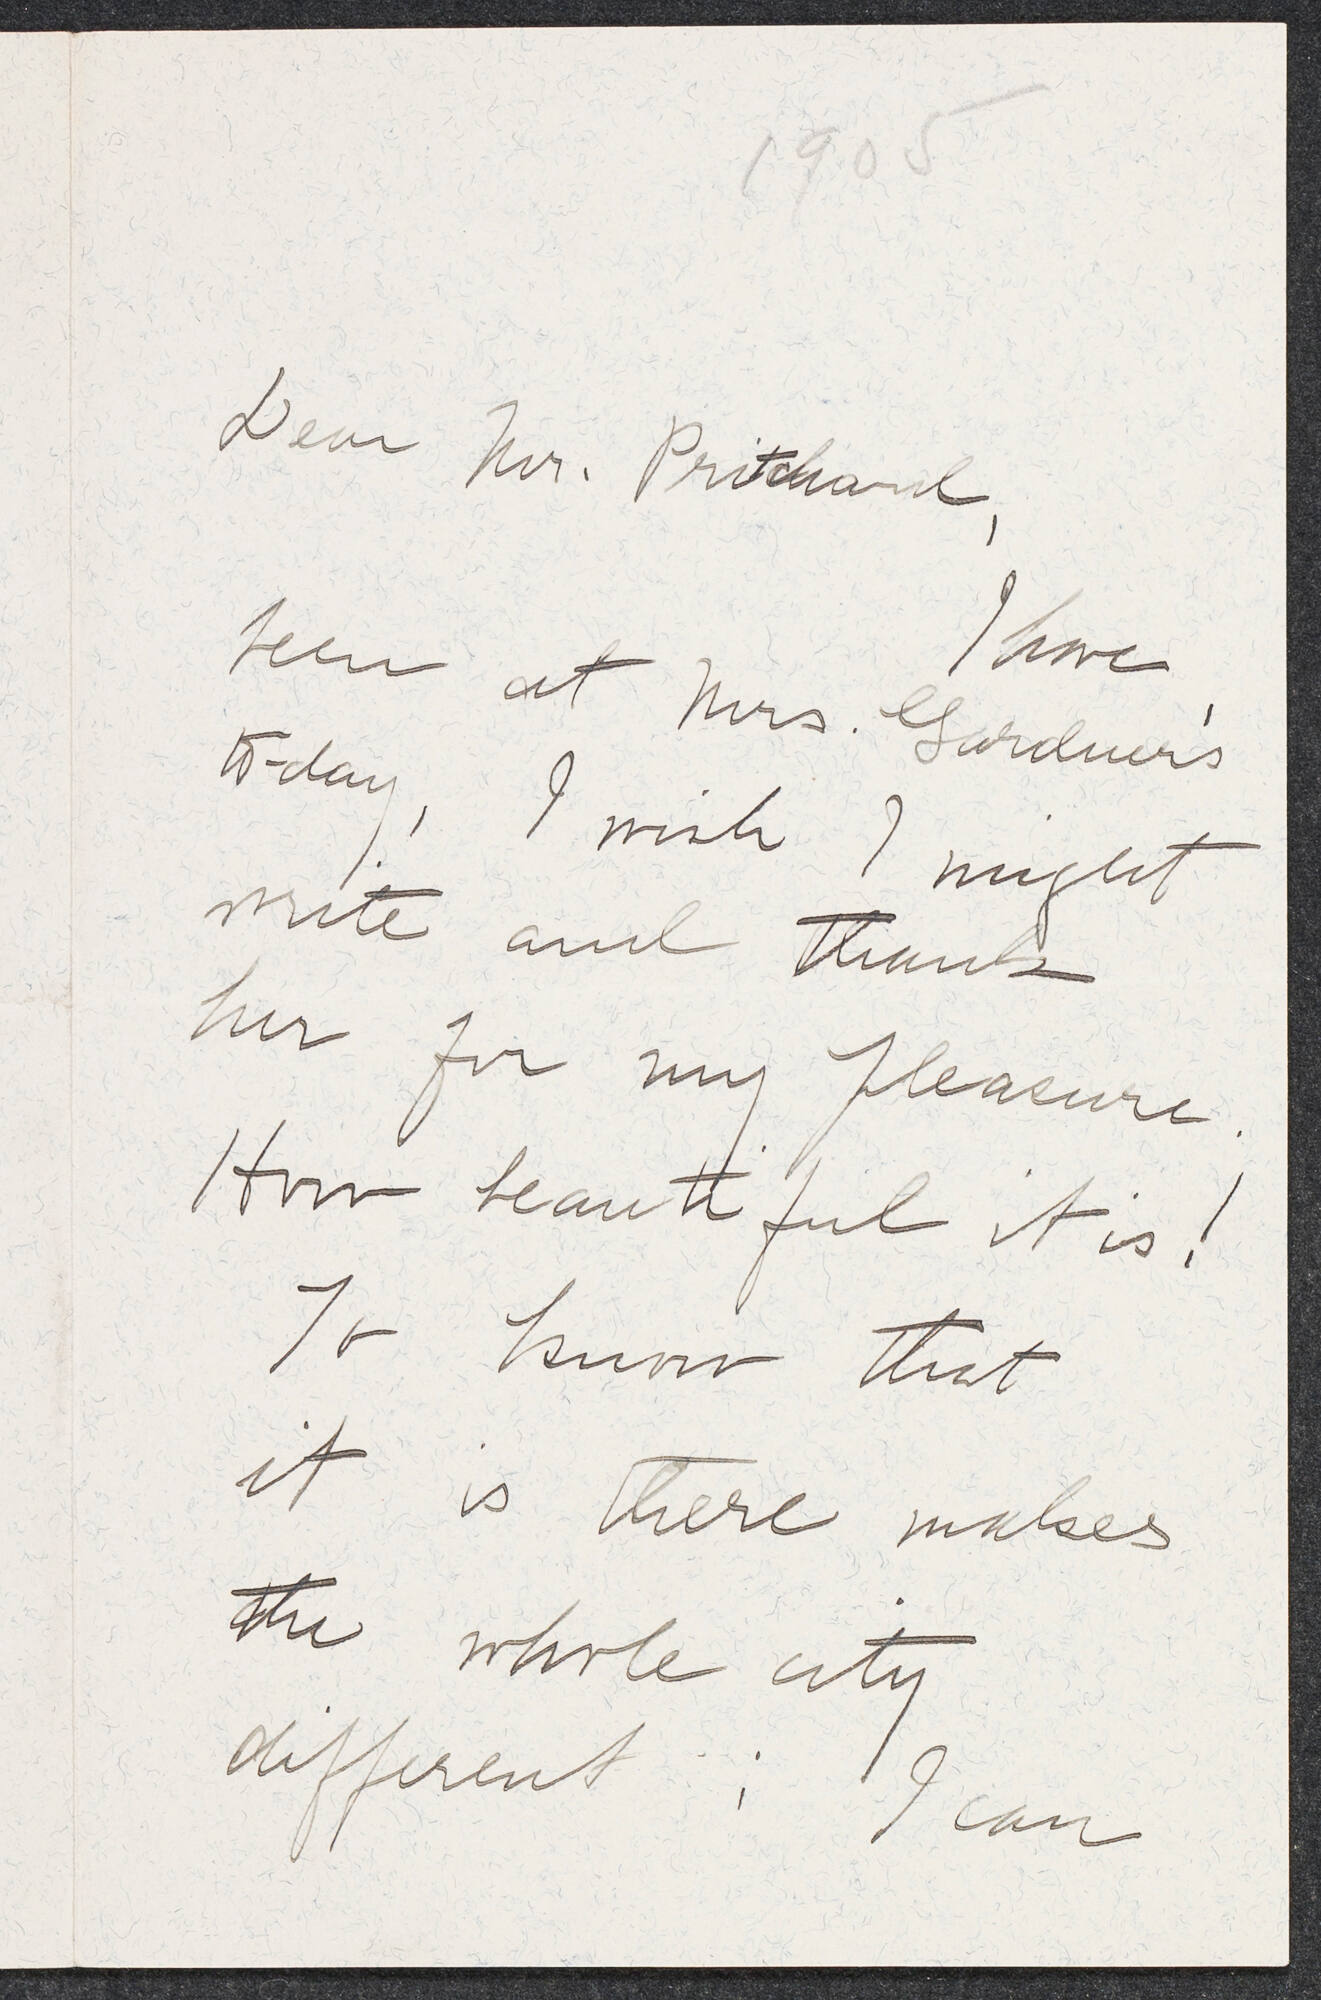 1905
Dear Mr. Pritchard,
I have
been at Mrs. Gardner's
to-day, I wish I might
write and thank
her for my pleasure.
How beautiful it is!
To know that
it is there makes
the whole city
different ; I can